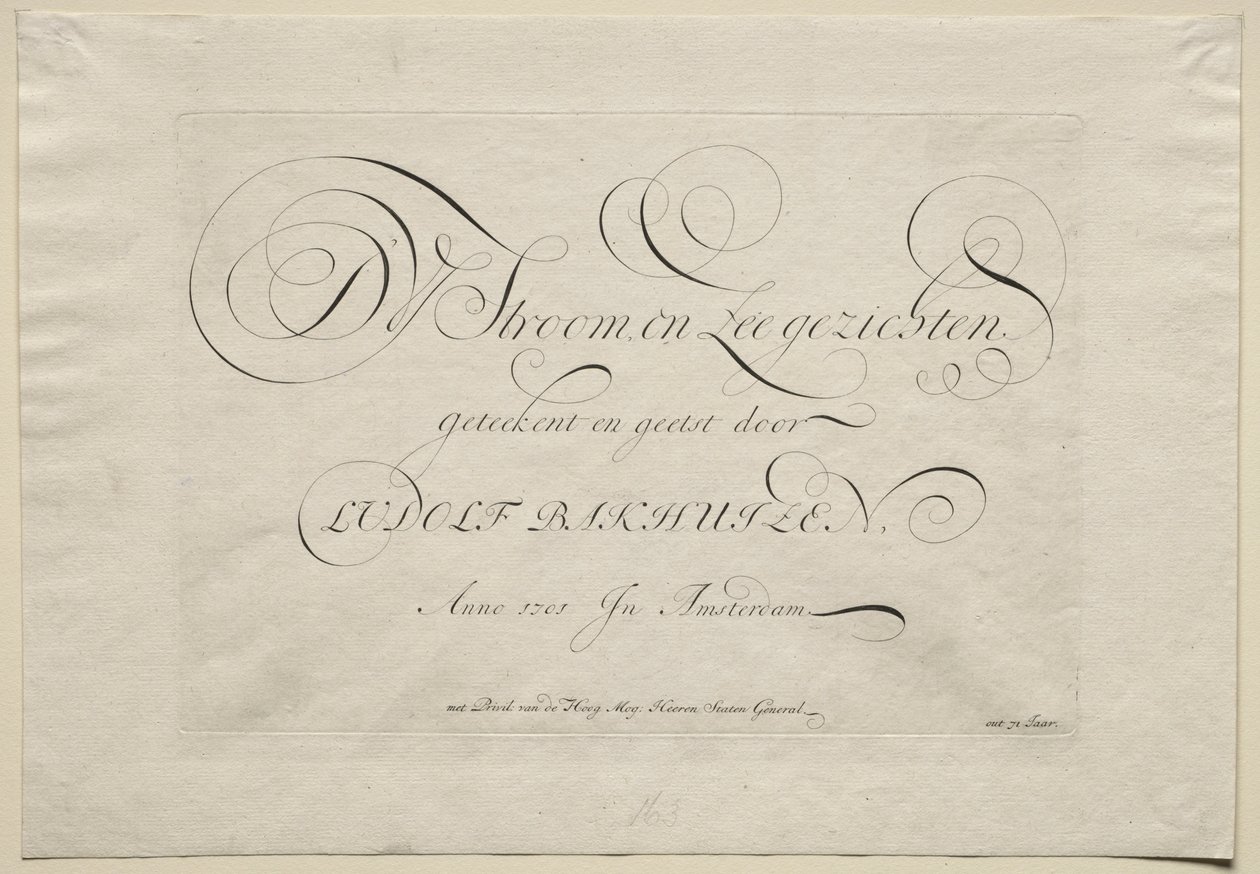 D'Y Stroom, en Zee gezichten.
geteekent en geetst door
LUDOLF BAKHUIZEN,
Anno 1701 In Amsterdam.
met Privil: van de Hoog Mog: Heeren Staten General.
out 71 Jaar.
163